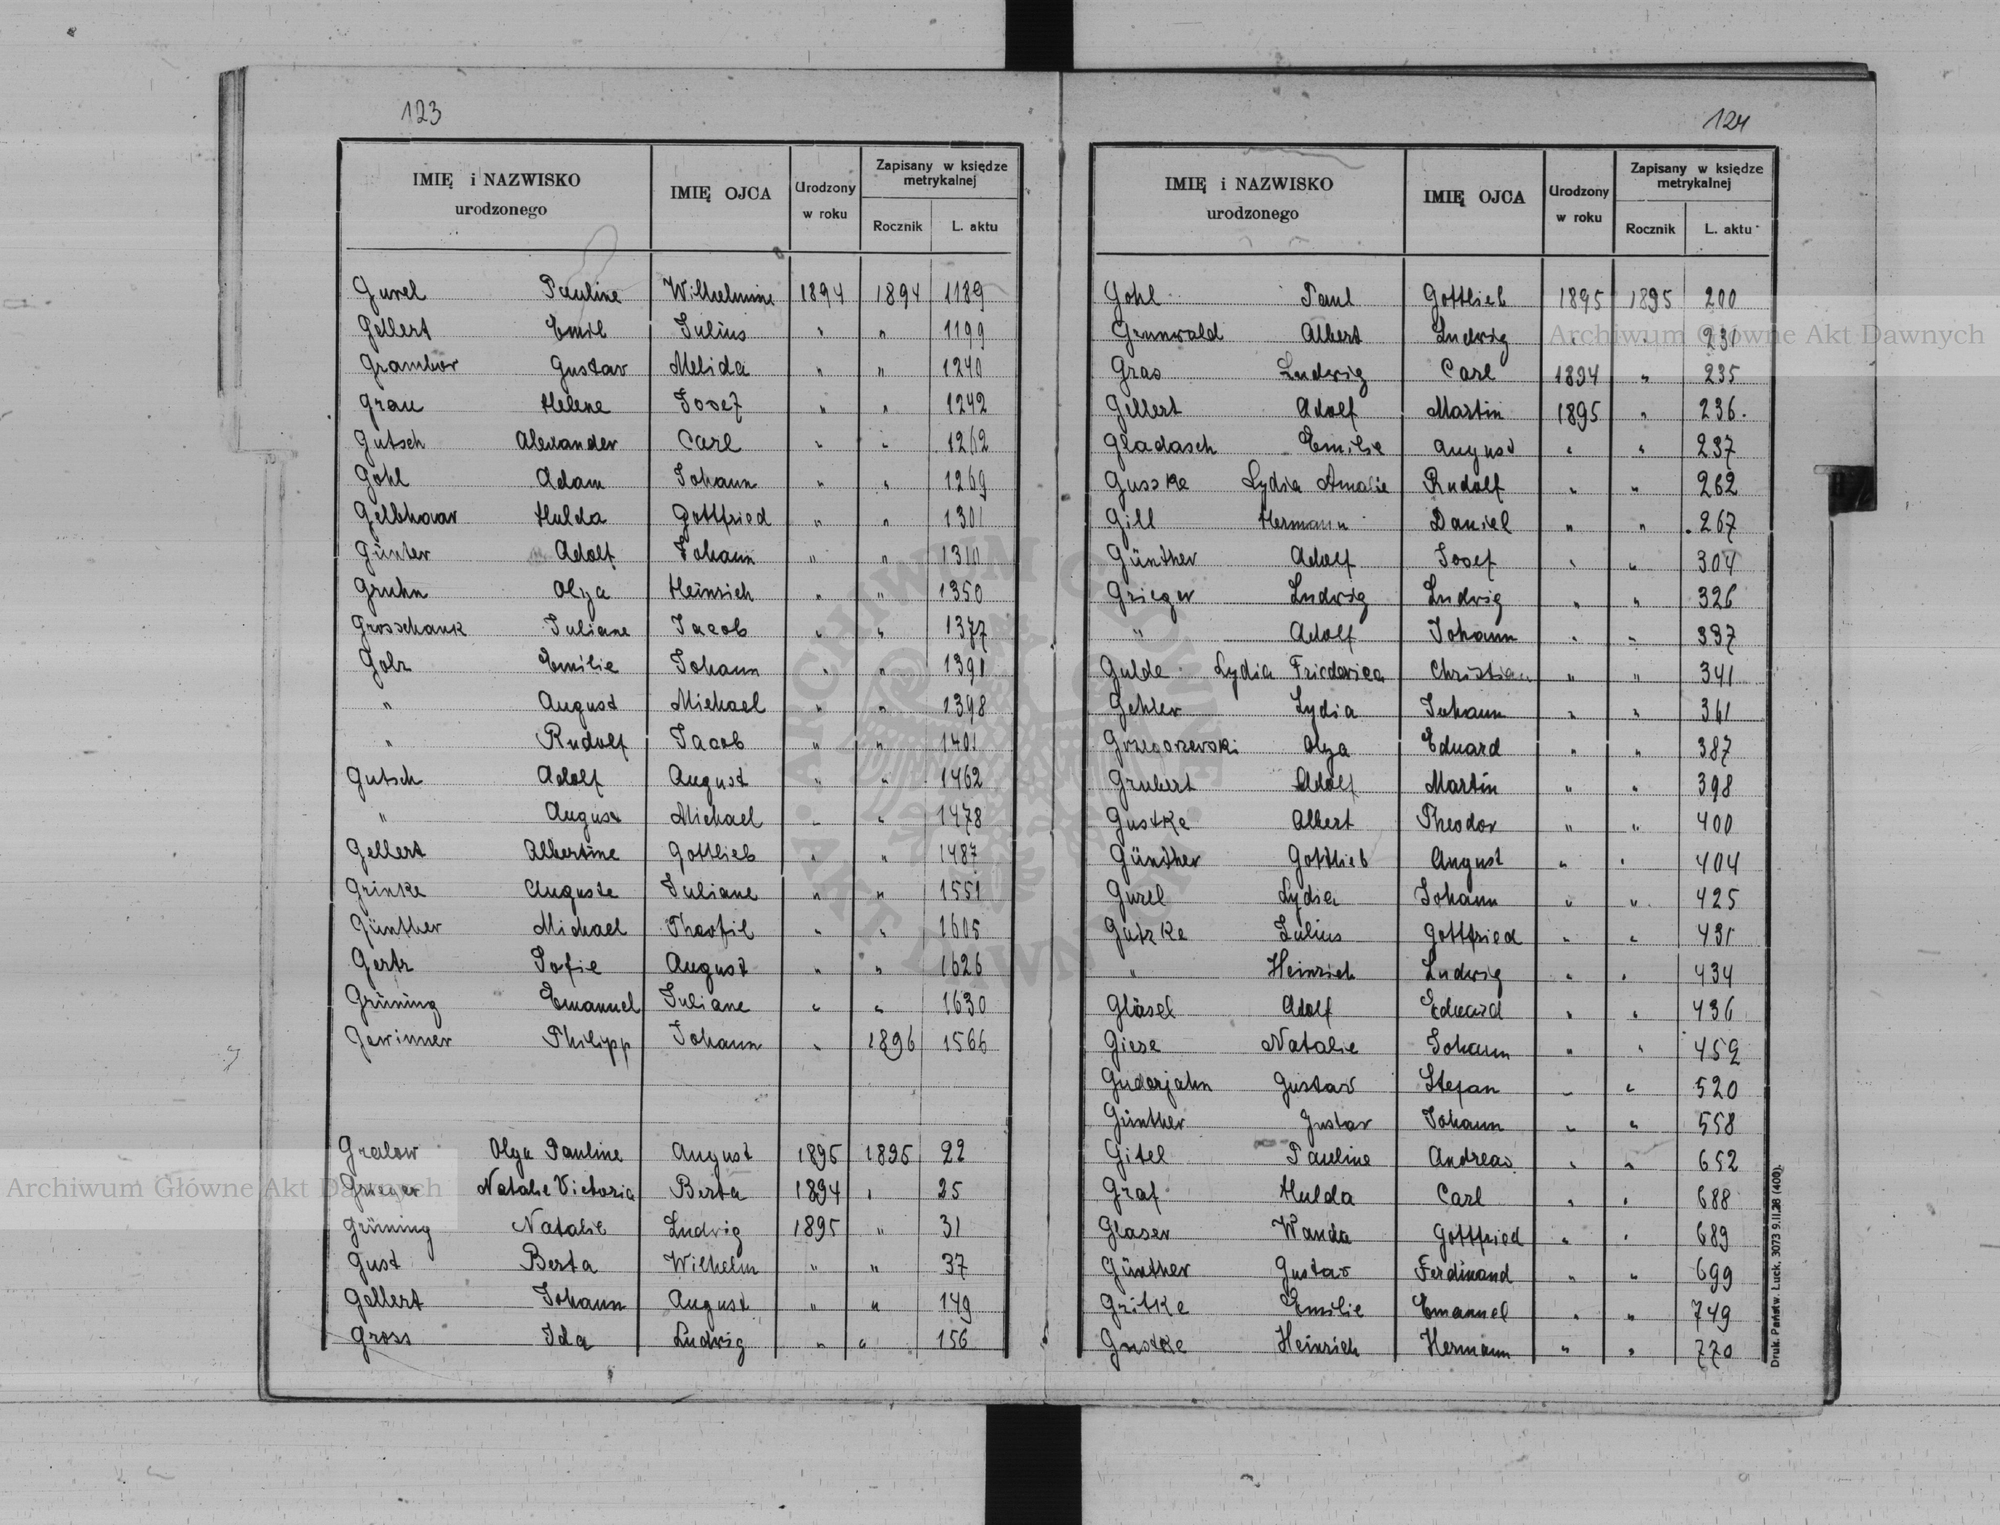 123
IMIĘ i NAZWISKO urodzonego IMIĘ OJCA Urodzony w roku Zapisany w księdze metrykalnej Rocznik L. aktu
Gurel Pauline Wilhelmine 1894 1894 1189
Gellert Emil Julius " " 1199
Grambor Gustav Melida " " 1240
Grau Helene Josef " " 1242
Gutsch Alexander Carl " " 1262
Gohl Adam Johann " " 1269
Hulda Gottfried " " 1301
Günter Adolf Johann " " 1310
Gruhn Olga Heinrich " " 1350
Grosschank Juliane Jacob " " 1377
Golz Emilie Johann " " 1391
" August Michael " " 1398
" Rudolf Jacob " " 1401
Gutsch Adolf August " " 1462
" August Michael " " 1478
Gellert Albertine Gottlieb " " 1487
Grinke Auguste Juliane " " 1551
Günther Michael Theofil " " 1605
Gertz Sofie August " " 1626
Grüning Emanuel Juliane " " 1630
Gewinner Philipp Johann " 1896 1566
Gralow Olga Pauline August 1895 1895 22
Grieger Natalie Victoria Berta 1894 " 25
Grüning Natalie Ludwig 1895 " 31
Gust Berta Wilhelm " " 37
Gellert Johann August " " 149
Gross Ida Ludwig " " 156
124
IMIĘ i NAZWISKO urodzonego IMIĘ OJCA Urodzony w roku Zapisany w księdze metrykalnej Rocznik L. aktu
Gohl Paul Gottlieb 1895 1895 200
Grunwald Albert Ludwig " " 231
Gras Ludwig Carl 1894 " 235
Gellert Adolf Martin 1895 " 236.
Gladasch Emilie August " " 237
Gusske Lydia Amalie Rudolf " " 262
Gill Hermann Daniel " " 267
Günther Adolf Josef " " 304
Grieger Ludwig Ludwig " " 326
" Adolf Johann " " 337
Gulde Lydia Friederica Christian " " 341
Gehler Lydia Johann " " 361
Grzegorzewski Olga Eduard " " 387
Grubert Adolf Martin " " 398
Gustke Albert Theodor " " 400
Günther Gottlieb August " " 404
Gurel Lydia Johann " " 425
Gutzke Julius Gottfried " " 431
" Heinrich Ludwig " " 434
Gläsel Adolf Eduard " " 436
Giese Natalie Johann " " 459
Guderjahn Gustav Stefan " " 520
Günther Gustav Johann " " 558
Gitel Pauline Andreas " " 652
Graf Hulda Carl " " 688
Glaser Wanda Gottfried " " 689
Günther Gustav Ferdinand " " 699
Gritke Emilie Emanuel " " 749
Gustke Heinrich Hermann " " 770
Druk. Państw. Łuck. 3073 9.II.28 (400).
Archiwum Główne Akt Dawnych
Archiwum Główne Akt Dawnych
ARCHIWUM GŁÓWNE AKT DAWNYCH